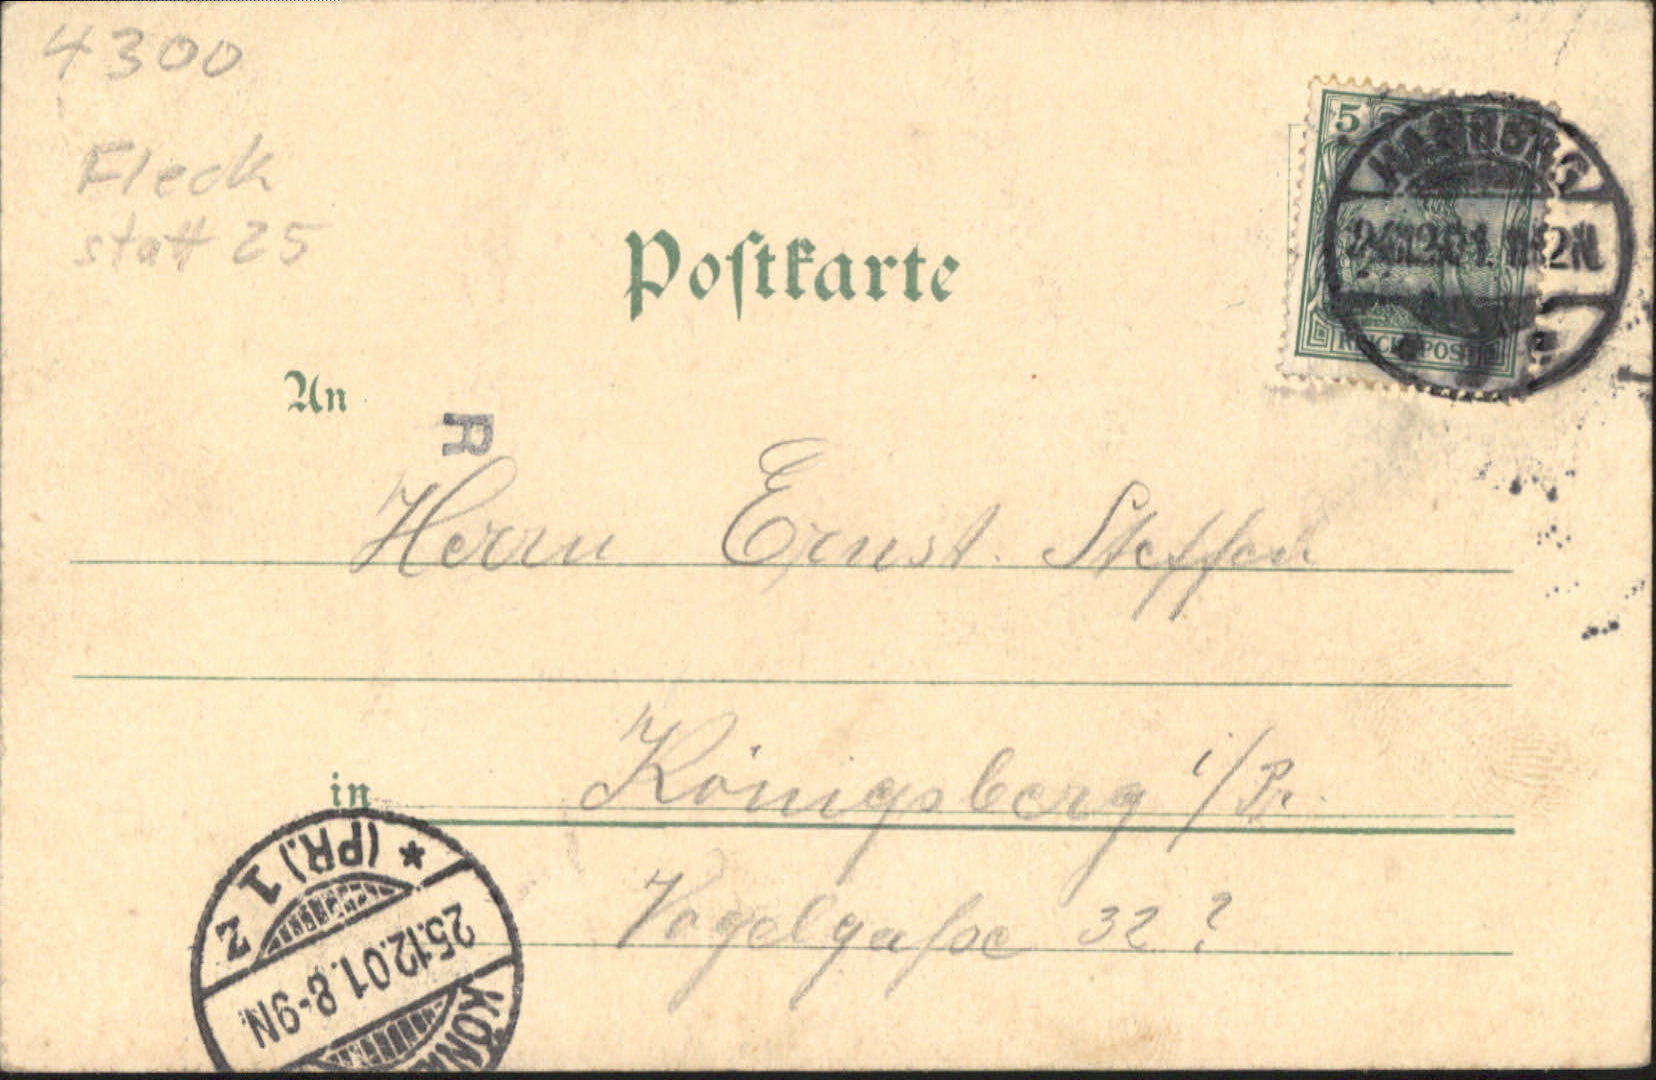 4300
Fleck
statt 25
5
HAMBURG
REICHSPOST
Postkarte
An
R
Herrn Ernst Steffen
in Königsberg i/Pr.
Vogelgasse 32?
* (PR.) 1 Z
25.12.01. 8-9N